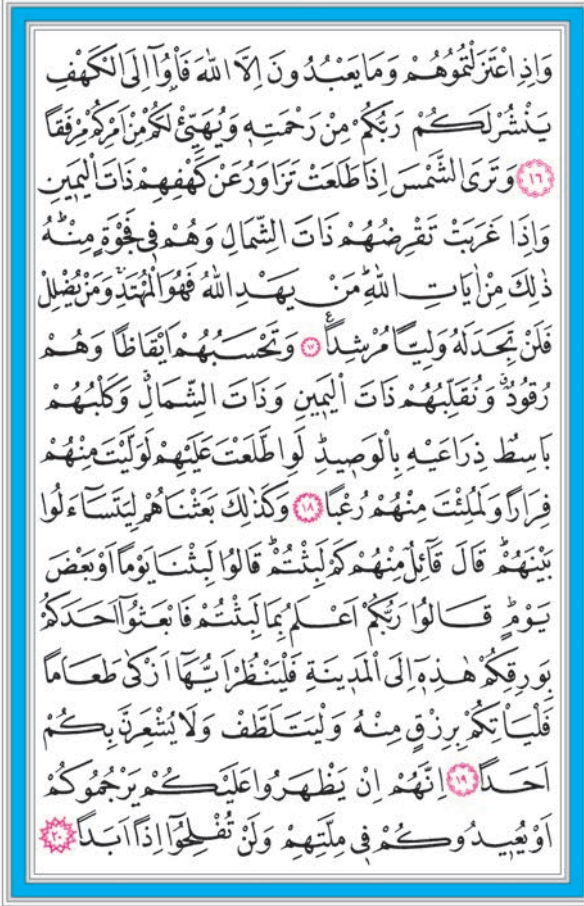 وَاِذِ اعْتَزَلْتُمُوهُمْ وَمَا يَعْبُدُونَ اِلَّا اللّٰهَ فَأْوُٓا اِلَى الْكَهْفِ
يَنْشُرْ لَكُمْ رَبُّكُمْ مِنْ رَحْمَتِه۪ وَيُهَيِّئْ لَكُمْ مِنْ اَمْرِكُمْ مِرْفَقًا
﴿١٦﴾ وَتَرَى الشَّمْسَ اِذَا طَلَعَتْ تَزَاوَرُ عَنْ كَهْفِهِمْ ذَاتَ الْيَم۪ينِ
وَاِذَا غَرَبَتْ تَقْرِضُهُمْ ذَاتَ الشِّمَالِ وَهُمْ ف۪ي فَجْوَةٍ مِنْهُۜ
ذٰلِكَ مِنْ اٰيَاتِ اللّٰهِۜ مَنْ يَهْدِ اللّٰهُ فَهُوَ الْمُهْتَدِۚ وَمَنْ يُضْلِلْ
فَلَنْ تَجِدَ لَهُ وَلِيًّا مُرْشِدًا۟ ﴿١٧﴾ وَتَحْسَبُهُمْ اَيْقَاظًا وَهُمْ
رُقُودٌۗ وَنُقَلِّبُهُمْ ذَاتَ الْيَم۪ينِ وَذَاتَ الشِّمَالِۗ وَكَلْبُهُمْ
بَاسِطٌ ذِرَاعَيْهِ بِالْوَص۪يدِۜ لَوِ اطَّلَعْتَ عَلَيْهِمْ لَوَلَّيْتَ مِنْهُمْ
فِرَارًا وَلَمُلِئْتَ مِنْهُمْ رُعْبًا ﴿١٨﴾ وَكَذٰلِكَ بَعَثْنَاهُمْ لِيَتَسَٓاءَلُوا
بَيْنَهُمْۜ قَالَ قَٓائِلٌ مِنْهُمْ كَمْ لَبِثْتُمْۜ قَالُوا لَبِثْنَا يَوْمًا اَوْ بَعْضَ
يَوْمٍۜ قَالُوا رَبُّكُمْ اَعْلَمُ بِمَا لَبِثْتُمْ فَابْعَثُٓوا اَحَدَكُمْ
بِوَرِقِكُمْ هٰذِه۪ٓ اِلَى الْمَد۪ينَةِ فَلْيَنْظُرْ اَيُّهَٓا اَزْكٰى طَعَامًا
فَلْيَأْتِكُمْ بِرِزْقٍ مِنْهُ وَلْيَتَلَطَّفْ وَلَا يُشْعِرَنَّ بِكُمْ
اَحَدًا ﴿١٩﴾ اِنَّهُمْ اِنْ يَظْهَرُوا عَلَيْكُمْ يَرْجُمُوكُمْ
اَوْ يُع۪يدُوكُمْ ف۪ي مِلَّتِهِمْ وَلَنْ تُفْلِحُٓوا اِذًا اَبَدًا ﴿٢٠﴾